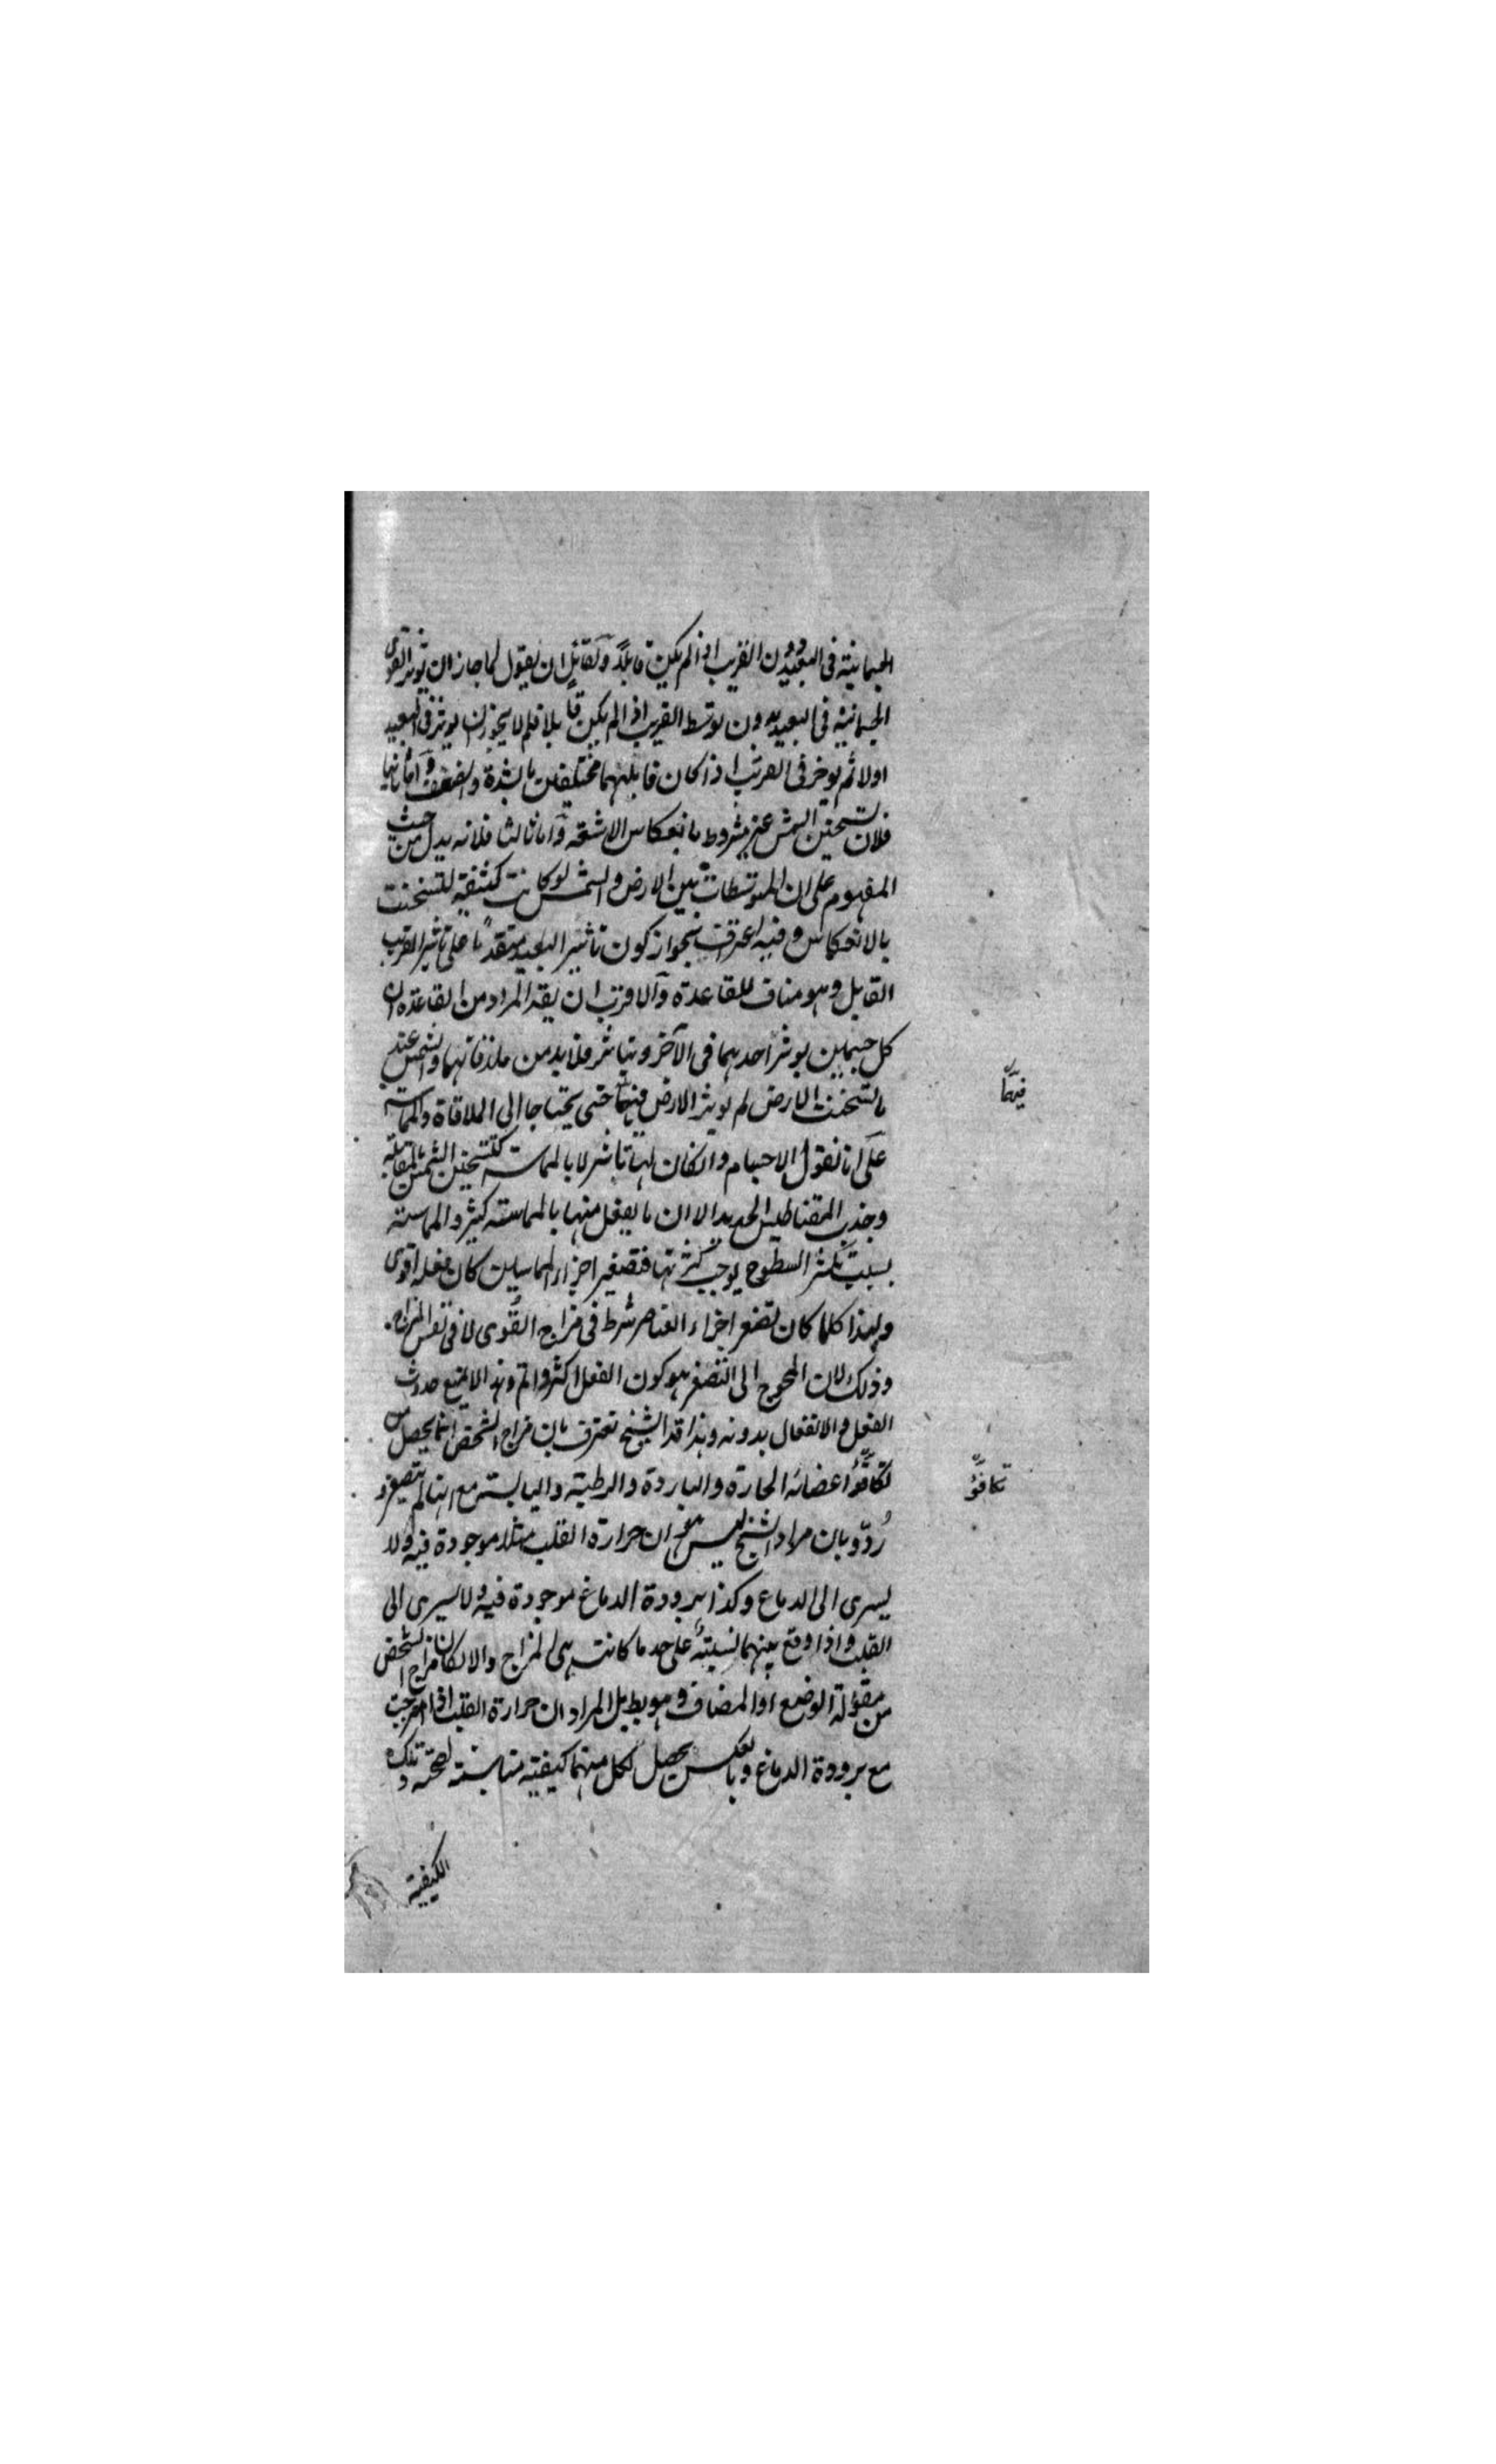 الجسمانية في البعيد دون القريب اذا لم يكن قابلاً ولقائل ان يقول لما جاز ان تؤثر القوى
الجسمانية في البعيد بدون توسط القريب اذا لم يكن قابلا فلم لا يجوز ان يوثر في البعيد
اولا ثم يوخر في القريب اذا كان قابلهما مختلفين بالشدة والضعف واما ثانيا
فلان تسخين الشمس غير مشروط بانعكاس الاشعة واما ثالثا فلانه يدل من حيث
المفهوم على ان المتوسطات بين الارض والشمس لو كانت كثيفة لتسخنت
بالانعكاس وفيه اعتراف بجواز كون تاثير البعيد متقدما على تاثير القريب
القابل وهو مناف للقاعدة والاقرب ان يقد المراد من القاعدة ان
كل جسمين يوثر احدهما في الآخر ويتاثر فلا بد من ملاقاتهما والشمس عند
ما تسخنت الارض لم يوثر الارض فيها حتى يحتاجا الى الملاقاة والمماسة
على انا نقول الاجسام وان كان لها تاثير لا بالمماسة كتسخين الشمس بالمقابلة
وجذب المقناطيس الحديد الا ان ما يفعل منها بالمماسة كثير والمماسة
بسبب تكثر السطوح يوجب كثرتها فتصغير اجزاء المماسين كان فعله اقوى
ولهذا كلما كان تصغر اجزاء العناصر شرط في مزاج القوى لا في نفس المزاج
وذلك لان المحوج الى التصغر هو كون الفعل اكثر واتم وهذا لا يمنع حدوث
الفعل والانفعال بدونه وهذا قد الشيخ تعترف بان مزاج الشخص انما يحصل من
تكافؤ اعضائه الحارة والباردة والرطبة واليابسة مع انها لم يتصغر و
رُدّ وبان مراد الشيخ ليس هو ان حرارة القلب مثلا موجودة فيه ولا
يسرى الى الدماغ وكذا برودة الدماغ موجودة فيه ولا يسرى الى
القلب واذا وقع بينهما نسبة على حد ما كانت هي المزاج والا لكان مزاج الشخص
من مقولة الوضع او المضاف وهو بط بل المراد ان حرارة القلب اذا امتزجت
مع برودة الدماغ وبالعكس يحصل لكل منهما كيفية مناسبة لصحته وتلك
الكيفية
فيها
تكافؤ